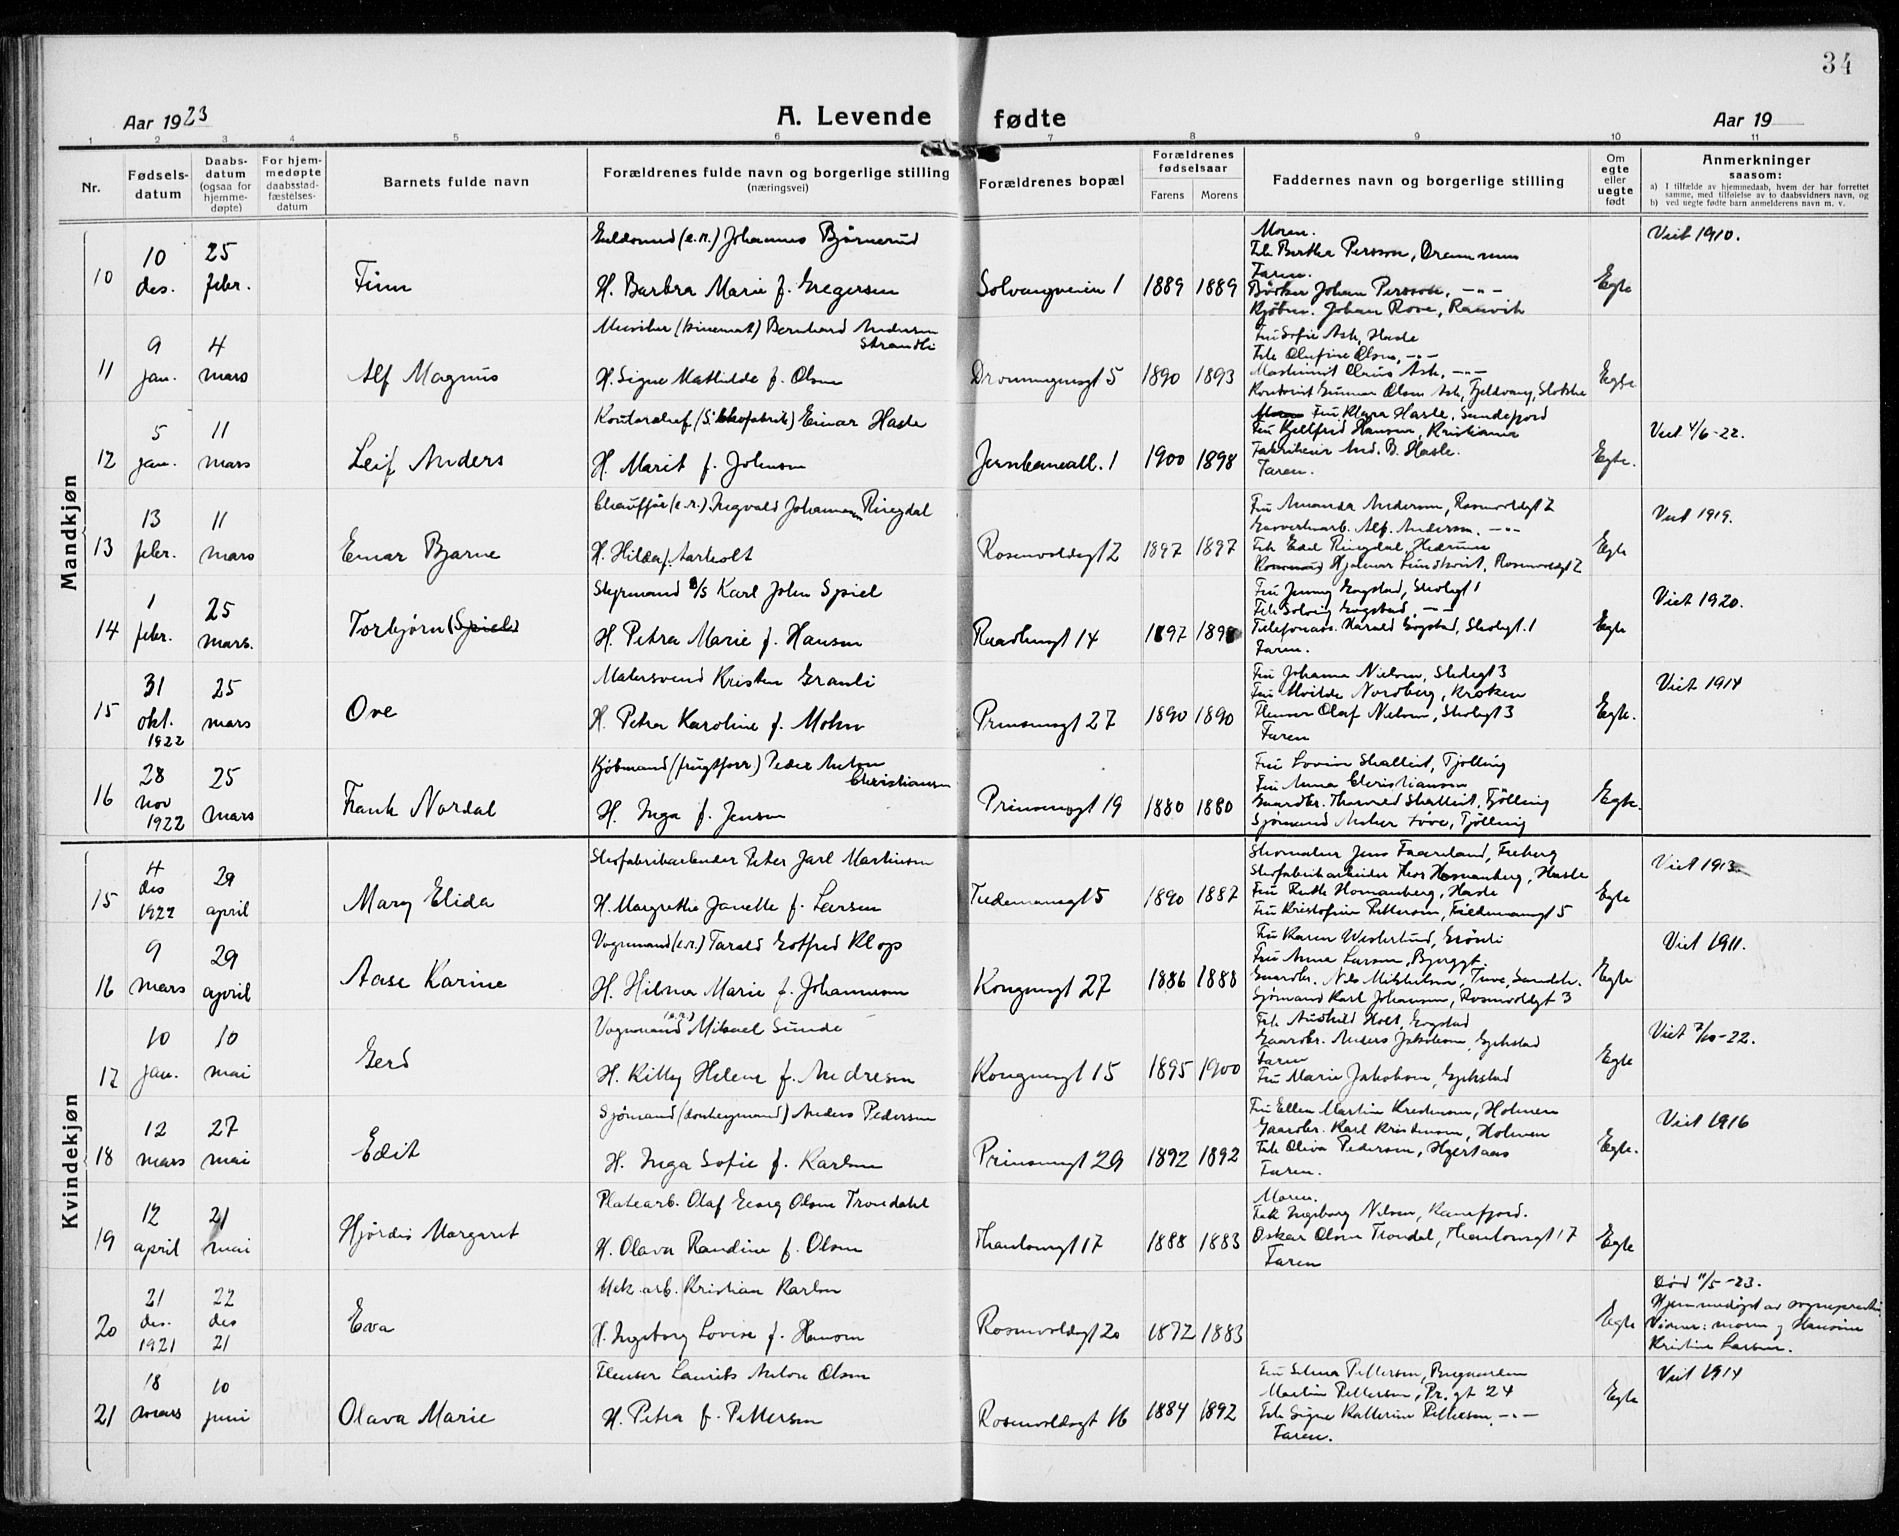 34
Aar 1923
A. Levende fødte
Aar 19
1 2 3 4 5 6 7 8 9 10 11
Nr.
Fødsels-
datum
Daabs-
datum
(ogsaa for
hjemme-
døpte)
For hjem-
medøpte
daabsstad-
fæstelses-
datum
Barnets fulde navn
Forældrenes fulde navn og borgerlige stilling
(næringsvei)
Forældrenes bopæl
Forældrenes
fødselsaar
Farens Morens
Faddernes navn og borgerlige stilling
Om
egte
eller
uegte
født
Anmerkninger
saasom:
a) I tilfælde av hjemmedaab, hvem der har forrettet
samme, med tilføielse av to daabsvidners navn, og
b) ved uegte fødte barn anmelderens navn m. v.
Mandkjøn
10
10 des.
25 febr.
Finn
(e.r.) Johannes Bjørnerud
H. Barbra Marie f. Gregersen
Solvangveien 1
1889 1889
Moren.
Frk Bertha Persson, Drammen
Faren.
Bødker Johan Persson, -"-
Kjøbm. Johan Rove, Ranvik
Egte
Viet 1910.
11
9 jan.
4 mars
Alf Magnus
Musiker (kinemat) Bernhard Andersen
Strandli
H. Signe Mathilde f. Olsen
Dronningensgt 5
1890 1893
Fru Sofie Ask, Hasle
Frk Olufine Olsen, -"-
Maskinist Claus Ask, -"-
Kontorist Gunnar Olsen Ask, Fjeldvang,
Egte
12
5 jan.
11 mars
Leif Anders
Kontorchef (Skofabrik) Einar Hasle
H. Marit f. Johnsen
Jernbaneall. 1
1900 1898
Fru Klara Hasle, Sandefjord
Fru Hansen, Kristiania
Fabrikeier And. B. Hasle.
Faren.
Egte.
Viet 4/6-22.
13
13 febr.
11 mars
Einar Bjarne
Chauffør (e.r.) Ingvald Johannesen Ringdal
H. Hilda f. Aarholt
Rosenvoldsgt 2
1897 1897
Fru Amanda Andersen, Rosenvoldsgt 2
Garverarb. Alf. Andersen. -"-
Frk Edel Ringdal, Hedrum
Hjalmar Lundkvist, Rosenvoldsgt 2
Egte
Viet 1919.
14
1 febr.
25 mars.
Torbjørn (Spiel)
Styrmand S/S Karl John Spiel
H. Petra Marie f. Hansen
Raadhusgt 14
1897 1898
Fru Jenny Gogstad, Skolegt 1
Frk Solveig Gogstad, -"-
Telefonass. Harald Gogstad, Skolegt. 1
Faren.
Egte
Viet 1920.
15
31 okt. 1922
25 mars
Ove
Malersvend Kristen Granli
H. Petra Karoline f. Mohn
Prinsensgt 27
1890 1890
Fru Johanne Nielsen, Skolegt 3
Fru Nordberg, Kroken
Flenser Olaf Nielsen, Skolegt 3
Faren
Egte.
Viet 1914
16
28 nov 1922
25 mars
Frank Nordal
Kjøbmand (frugtforr.) Peder Anton
Christiansen
H. Inga f. Jensen
Prinsensgt 19
1880 1880
Fru Lovise Skalleist, Tjølling
Fru Anna Christiansen
Gaardbr. Thorvald Skalleist, Tjølling
Sjømand Anker Tove, Tjølling
Egte.
Kvindekjøn
15
4 des 1922
29 april
Mary Elida
Skofabrikarbeider Peter Jarl Martinsen
H. Margrethe Janette f. Larsen
Tidemansgt 5
1890 1887
Skomaker Jens Faareland, Freberg
Skofabrikarbeider Thor Homanberg, Hasle
Fru Ruth Homanberg, Hasle
Fru Kristofine Pettersen, Tidemansgt 5
Egte
Viet 1913.
16
9 mars
29 april
Aase Karine
Vognmand (e.r.) Tarald Gotfred Klop
H. Hilma Marie f. Johannesen
Kongensgt 27
1886 1888
Fru Karen Westerlund,
Fru Anna Larsen, Bjerggt.
Gaardbr. Nils Mikkelsen,
Sjømand Karl Johansen, Rosenvoldsgt 3
Egte
Viet 1911.
17
10 jan.
10 mai
Gerd
Vognmand (e.r.) Mikael Sunde
H. Kitty Helene f. Andresen
Kongensgt 15
1895 1900
Frk Holt, Gogstad
Gaardbr. Anders Jakobsen, Gjekstad
Faren
Fru Marie Jakobsen, Gjekstad
Egte
Viet 7/10-22.
18
12 mars
27 mai
Edit
Sjømand (donkeymand) Anders Pedersen
H. Inga Sofie f. Karlsen
Prinsensgt 29
1892 1892
Fru Ellen Martine Kristensen, Holmen
Gaardbr. Karl Kristensen, Holmen
Frk Oliva Pedersen, Hjertaas
Faren.
Egte.
Viet 1916
19
12 april
21 mai
Hjørdis Margaret
Platearb. Olaf Georg Olsen Trondahl
H. Olava Randine f. Olsen
Thaulowsgt 17
1888 1883
Moren.
Frk Ingeborg Nilsen, Kamfjord.
Oskar Olsen Trondal, Thaulowsgt 17
Faren
Egte
20
21 des. 1921
22 des 21
Eva
Mek. arb. Kristian Karlsen
H. Ingeborg Lovise f. Hansen
Rosenvoldsgt 20
1872 1883
Egte
Død 11/5-23.
Hjemmedøpt av sogneprest
Vidner: moren og Hansine
Kristine Larsen.
21
18 mars
10 juni
Olava Marie
Flenser Laurits Anton Olsen
H. Petra f. Pettersen
Rosenvoldsgt 16
1884 1892
Fru Selma Pettersen,
Martin Pettersen, Pr. gt 24
Frk Signe Katterine Pettersen, -"-
Faren.
Egte
Viet 1914